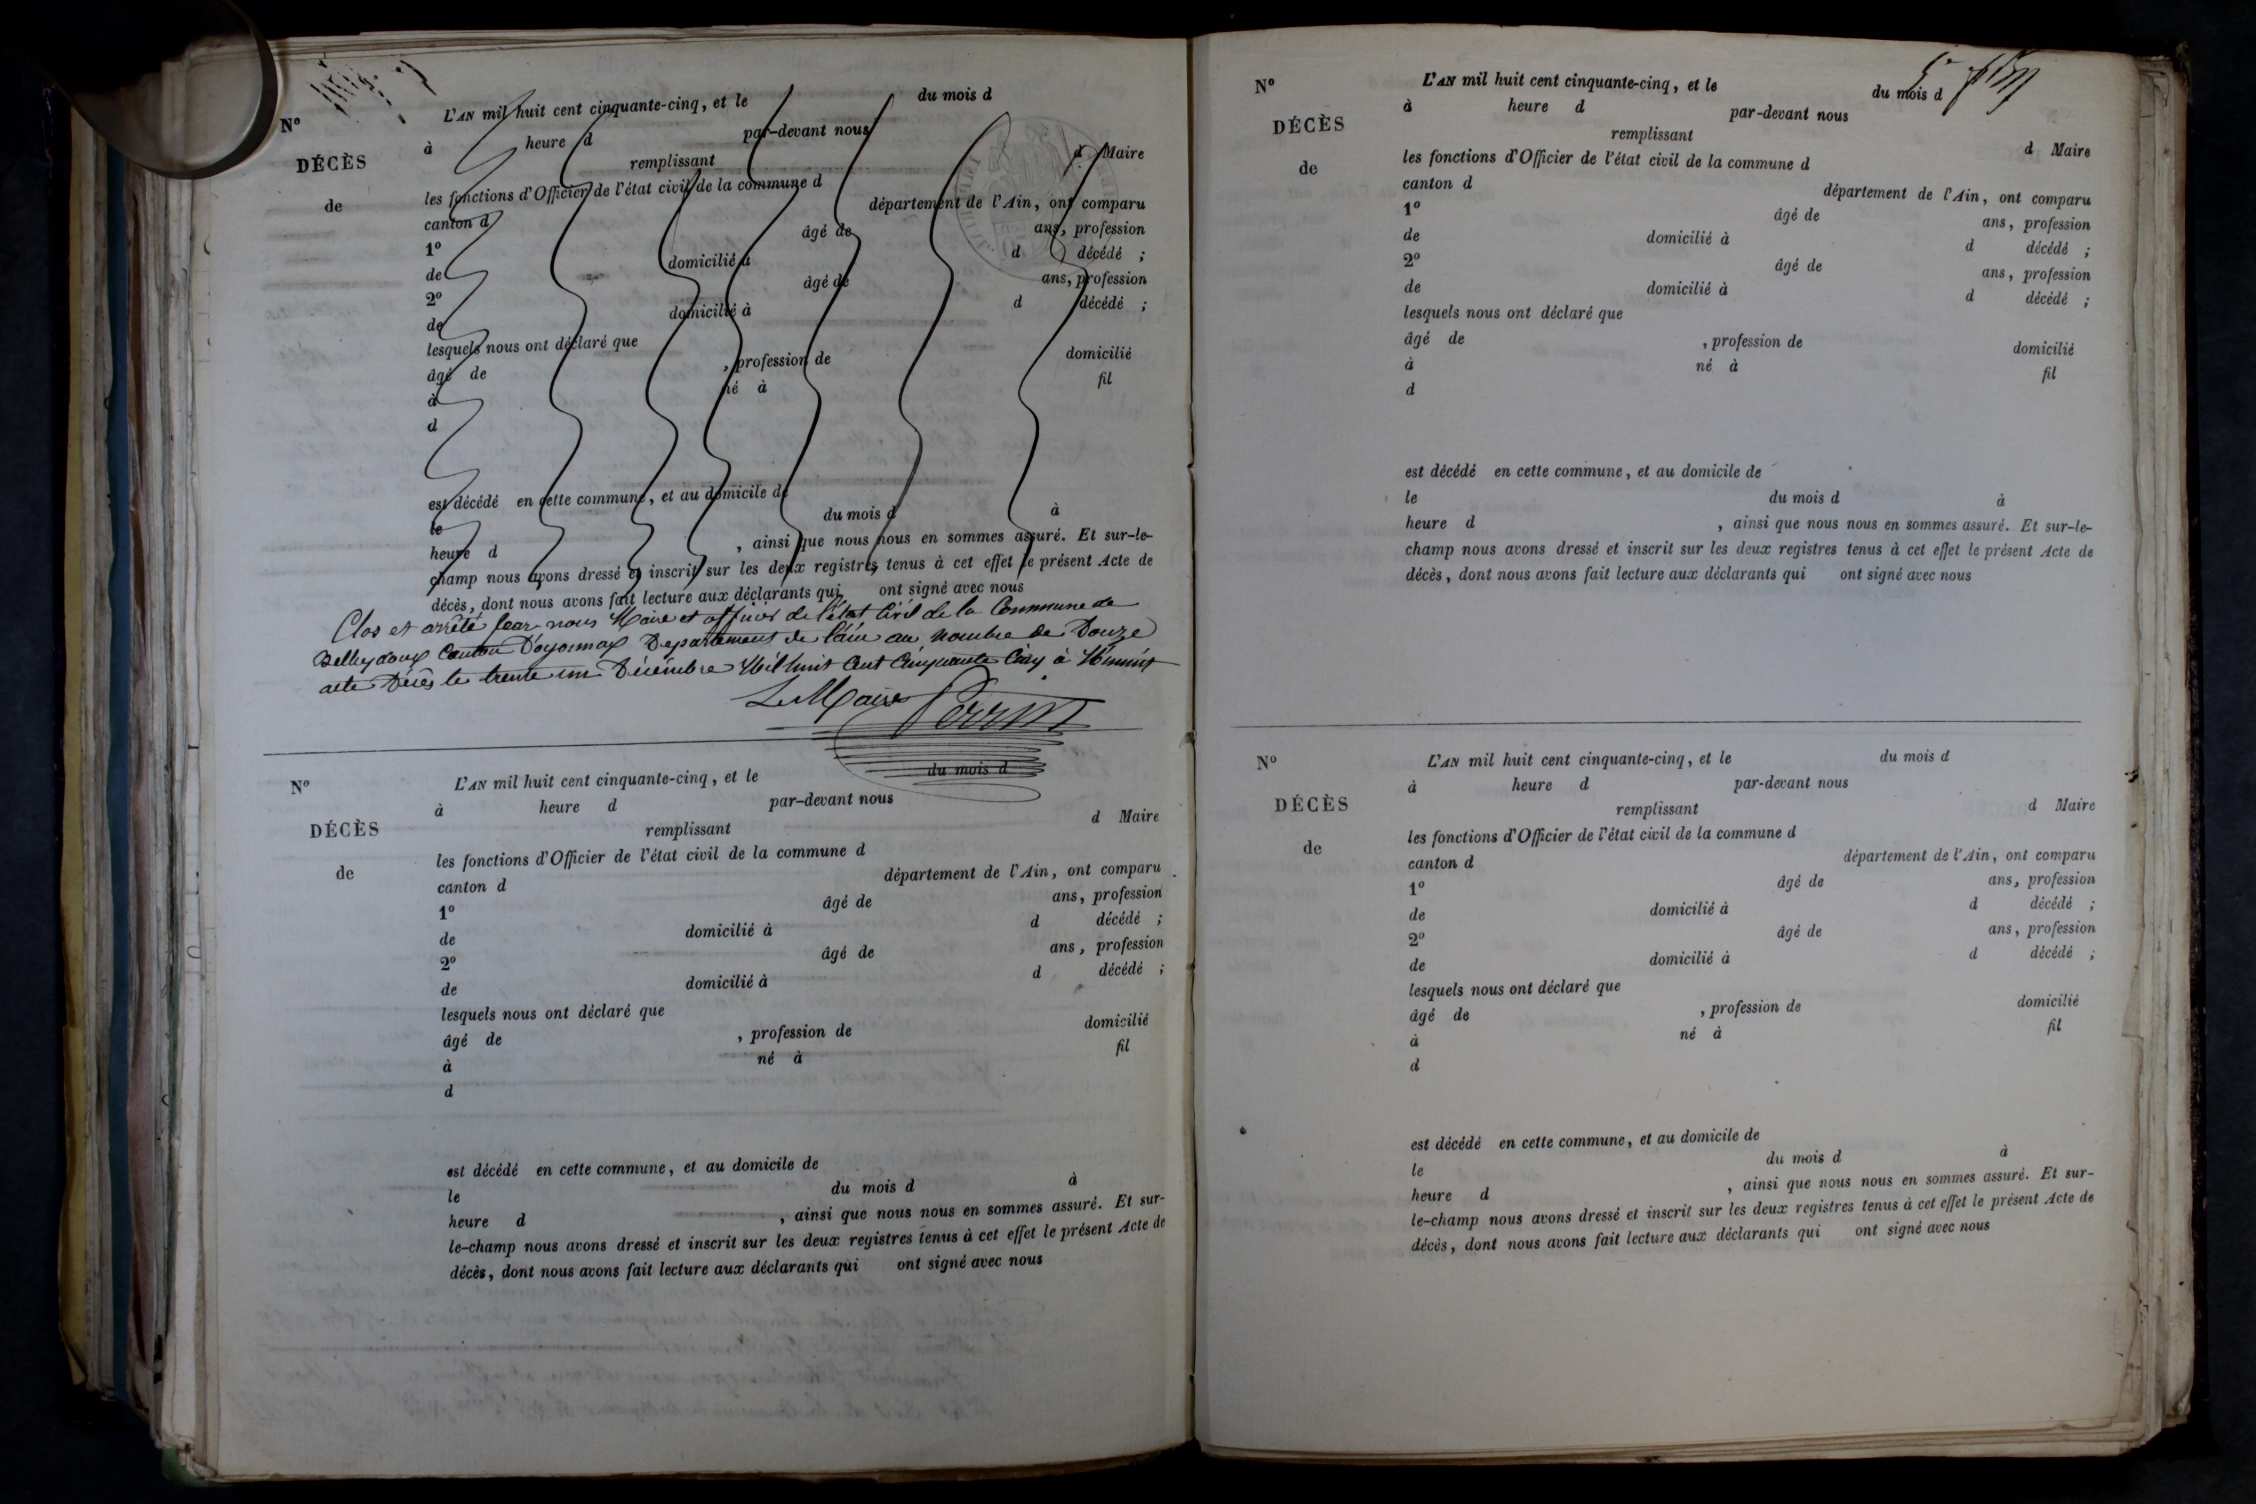 L'AN mil huit cent cinquante-cinq, et le du mois d
N° à heure d par-devant nous
DÉCÈS remplissant d Maire
de les fonctions d'Officier de l'état civil de la commune d
canton d département de l'Ain, ont comparu
1° âgé de ans, profession
de domicilié à d décédé ;
2° âgé de ans, profession
de domicilié à d décédé ;
lesquels nous ont déclaré que
âgé de , profession de domicilié
à né à fil
d
est décédé en cette commune, et au domicile de
le du mois d à
heure d , ainsi que nous nous en sommes assuré. Et sur-le-
champ nous avons dressé et inscrit sur les deux registres tenus à cet effet le présent Acte de
décès, dont nous avons fait lecture aux déclarants qui ont signé avec nous
Clos et arrêté par nous Maire et officier de l'état Civil de la Commune de
Belleydoux Canton D'oyonnax Departement de l'ain au nombre de Douze
acte Décès le trente un Décembre Mil huit Cent Cinquante Cinq à Minuit
Le Maire Perrin
N° L'AN mil huit cent cinquante-cinq, et le du mois d
à heure d par-devant nous
DÉCÈS remplissant d Maire
de les fonctions d'Officier de l'état civil de la commune d
canton d département de l'Ain, ont comparu
1° âgé de ans, profession
de domicilié à d décédé ;
2° âgé de ans, profession
de domicilié à d décédé ;
lesquels nous ont déclaré que
âgé de , profession de domicilié
à né à fil
d
est décédé en cette commune, et au domicile de
le du mois d à
heure d , ainsi que nous nous en sommes assuré. Et sur-
le-champ nous avons dressé et inscrit sur les deux registres tenus à cet effet le présent Acte de
décès, dont nous avons fait lecture aux déclarants qui ont signé avec nous
N° L'AN mil huit cent cinquante-cinq, et le du mois d
à heure d par-devant nous
DÉCÈS remplissant d Maire
de les fonctions d'Officier de l'état civil de la commune d
canton d département de l'Ain, ont comparu
1° âgé de ans, profession
de domicilié à d décédé ;
2° âgé de ans, profession
de domicilié à d décédé ;
lesquels nous ont déclaré que
âgé de , profession de domicilié
à né à fil
d
est décédé en cette commune, et au domicile de
le du mois d à
heure d , ainsi que nous nous en sommes assuré. Et sur-le-
champ nous avons dressé et inscrit sur les deux registres tenus à cet effet le présent Acte de
décès, dont nous avons fait lecture aux déclarants qui ont signé avec nous
N° L'AN mil huit cent cinquante-cinq, et le du mois d
à heure d par-devant nous
DÉCÈS remplissant d Maire
de les fonctions d'Officier de l'état civil de la commune d
canton d département de l'Ain, ont comparu
1° âgé de ans, profession
de domicilié à d décédé ;
2° âgé de ans, profession
de domicilié à d décédé ;
lesquels nous ont déclaré que
âgé de , profession de domicilié
à né à fil
d
est décédé en cette commune, et au domicile de
le du mois d à
heure d , ainsi que nous nous en sommes assuré. Et sur-
le-champ nous avons dressé et inscrit sur les deux registres tenus à cet effet le présent Acte de
décès, dont nous avons fait lecture aux déclarants qui ont signé avec nous